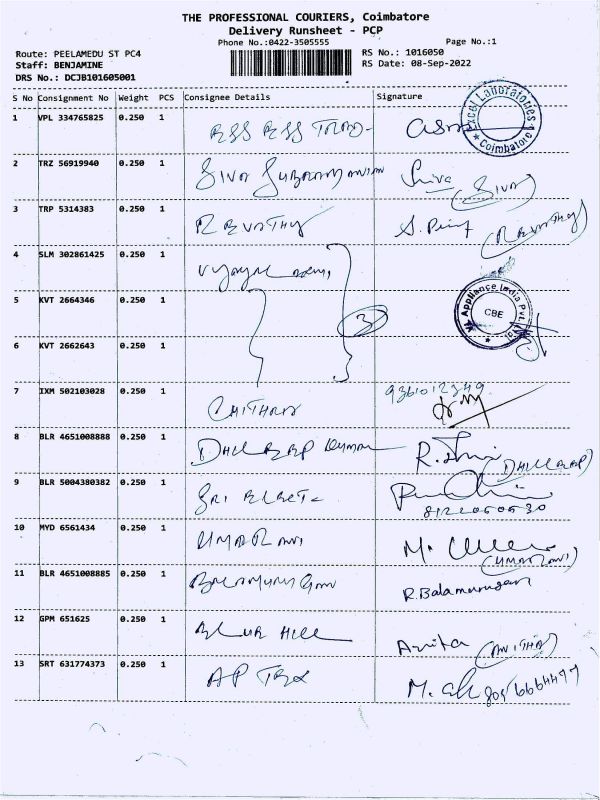 THE PROFESSIONAL COURIERS, Coimbatore
Delivery Runsheet - PCP
Phone No.:0422-3505555 Page No.:1
Route: PEELAMEDU ST PC4 RS No.: 1016050
Staff: BENJAMINE RS Date: 08-Sep-2022
DRS No.: DCJB101605001
S No Consignment No Weight PCS Consignee Details Signature
1 VPL 334765825 0.250 1
Excel Laboratories Coimbatore
2 TRZ 56919940 0.250 1 SIVA SUBRAMANIAN Shiva (SIVA)
3 TRP 5314383 0.250 1 REVATHY (REVATHY)
4 SLM 302861425 0.250 1
5 KVT 2664346 0.250 1 3
Appliance India Pvt. CBE
6 KVT 2662643 0.250 1
7 IXM 502103028 0.250 1 CHITHRA 9361012349
8 BLR 4651008888 0.250 1
9 BLR 5004380382 0.250 1 SRI
10 MYD 6561434 0.250 1 UMARANI M. (UMARANI)
11 BLR 4651008885 0.250 1 BALAMURUGAN R.Balamurugan
12 GPM 651625 0.250 1 BLUE HILL Anitha (ANITHA)
13 SRT 631774373 0.250 1 AP TEX M.